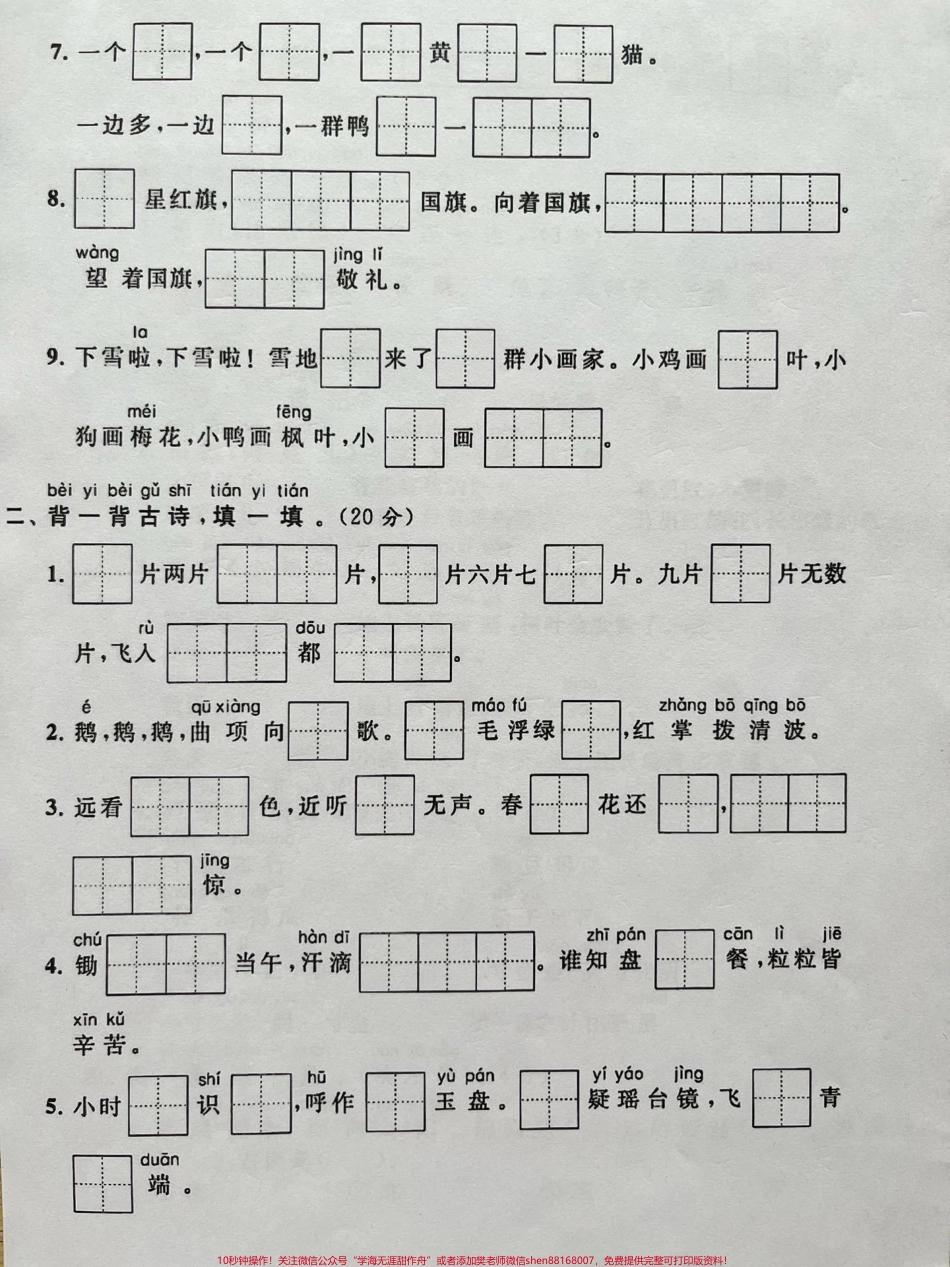 7. 一个 ,一个 ,一 黄 一 猫。
一边多,一边 ,一群鸭 一 。
8. 星红旗, 国旗。向着国旗, 。
wàng jìng lǐ
望着国旗, 敬礼。
la
9. 下雪啦,下雪啦!雪地 来了 群小画家。小鸡画 叶,小
méi fēng
狗画梅花,小鸭画枫叶,小 画 。
bèi yi bèi gǔ shī tián yi tián
二、背一背古诗,填一填。(20分)
1. 片两片 片, 片六片七 片。九片 片无数
rù dōu
片,飞入 都 。
é qū xiàng máo fú zhǎng bō qīng bō
2. 鹅,鹅,鹅,曲项向 歌。 毛浮绿 ,红掌拨清波。
3. 远看 色,近听 无声。春 花还 ,
jīng
惊。
chú hàn dī zhī pán cān lì jiē
4. 锄 当午,汗滴 。谁知盘 餐,粒粒皆
xīn kǔ
辛苦。
shí hū yù pán yí yáo jìng
5. 小时 识 ,呼作 玉盘。 疑瑶台镜,飞 青
duān
端。
10秒钟操作!关注微信公众号“学海无涯甜作舟”或者添加樊老师微信shen88168007,免费提供完整可打印版资料!